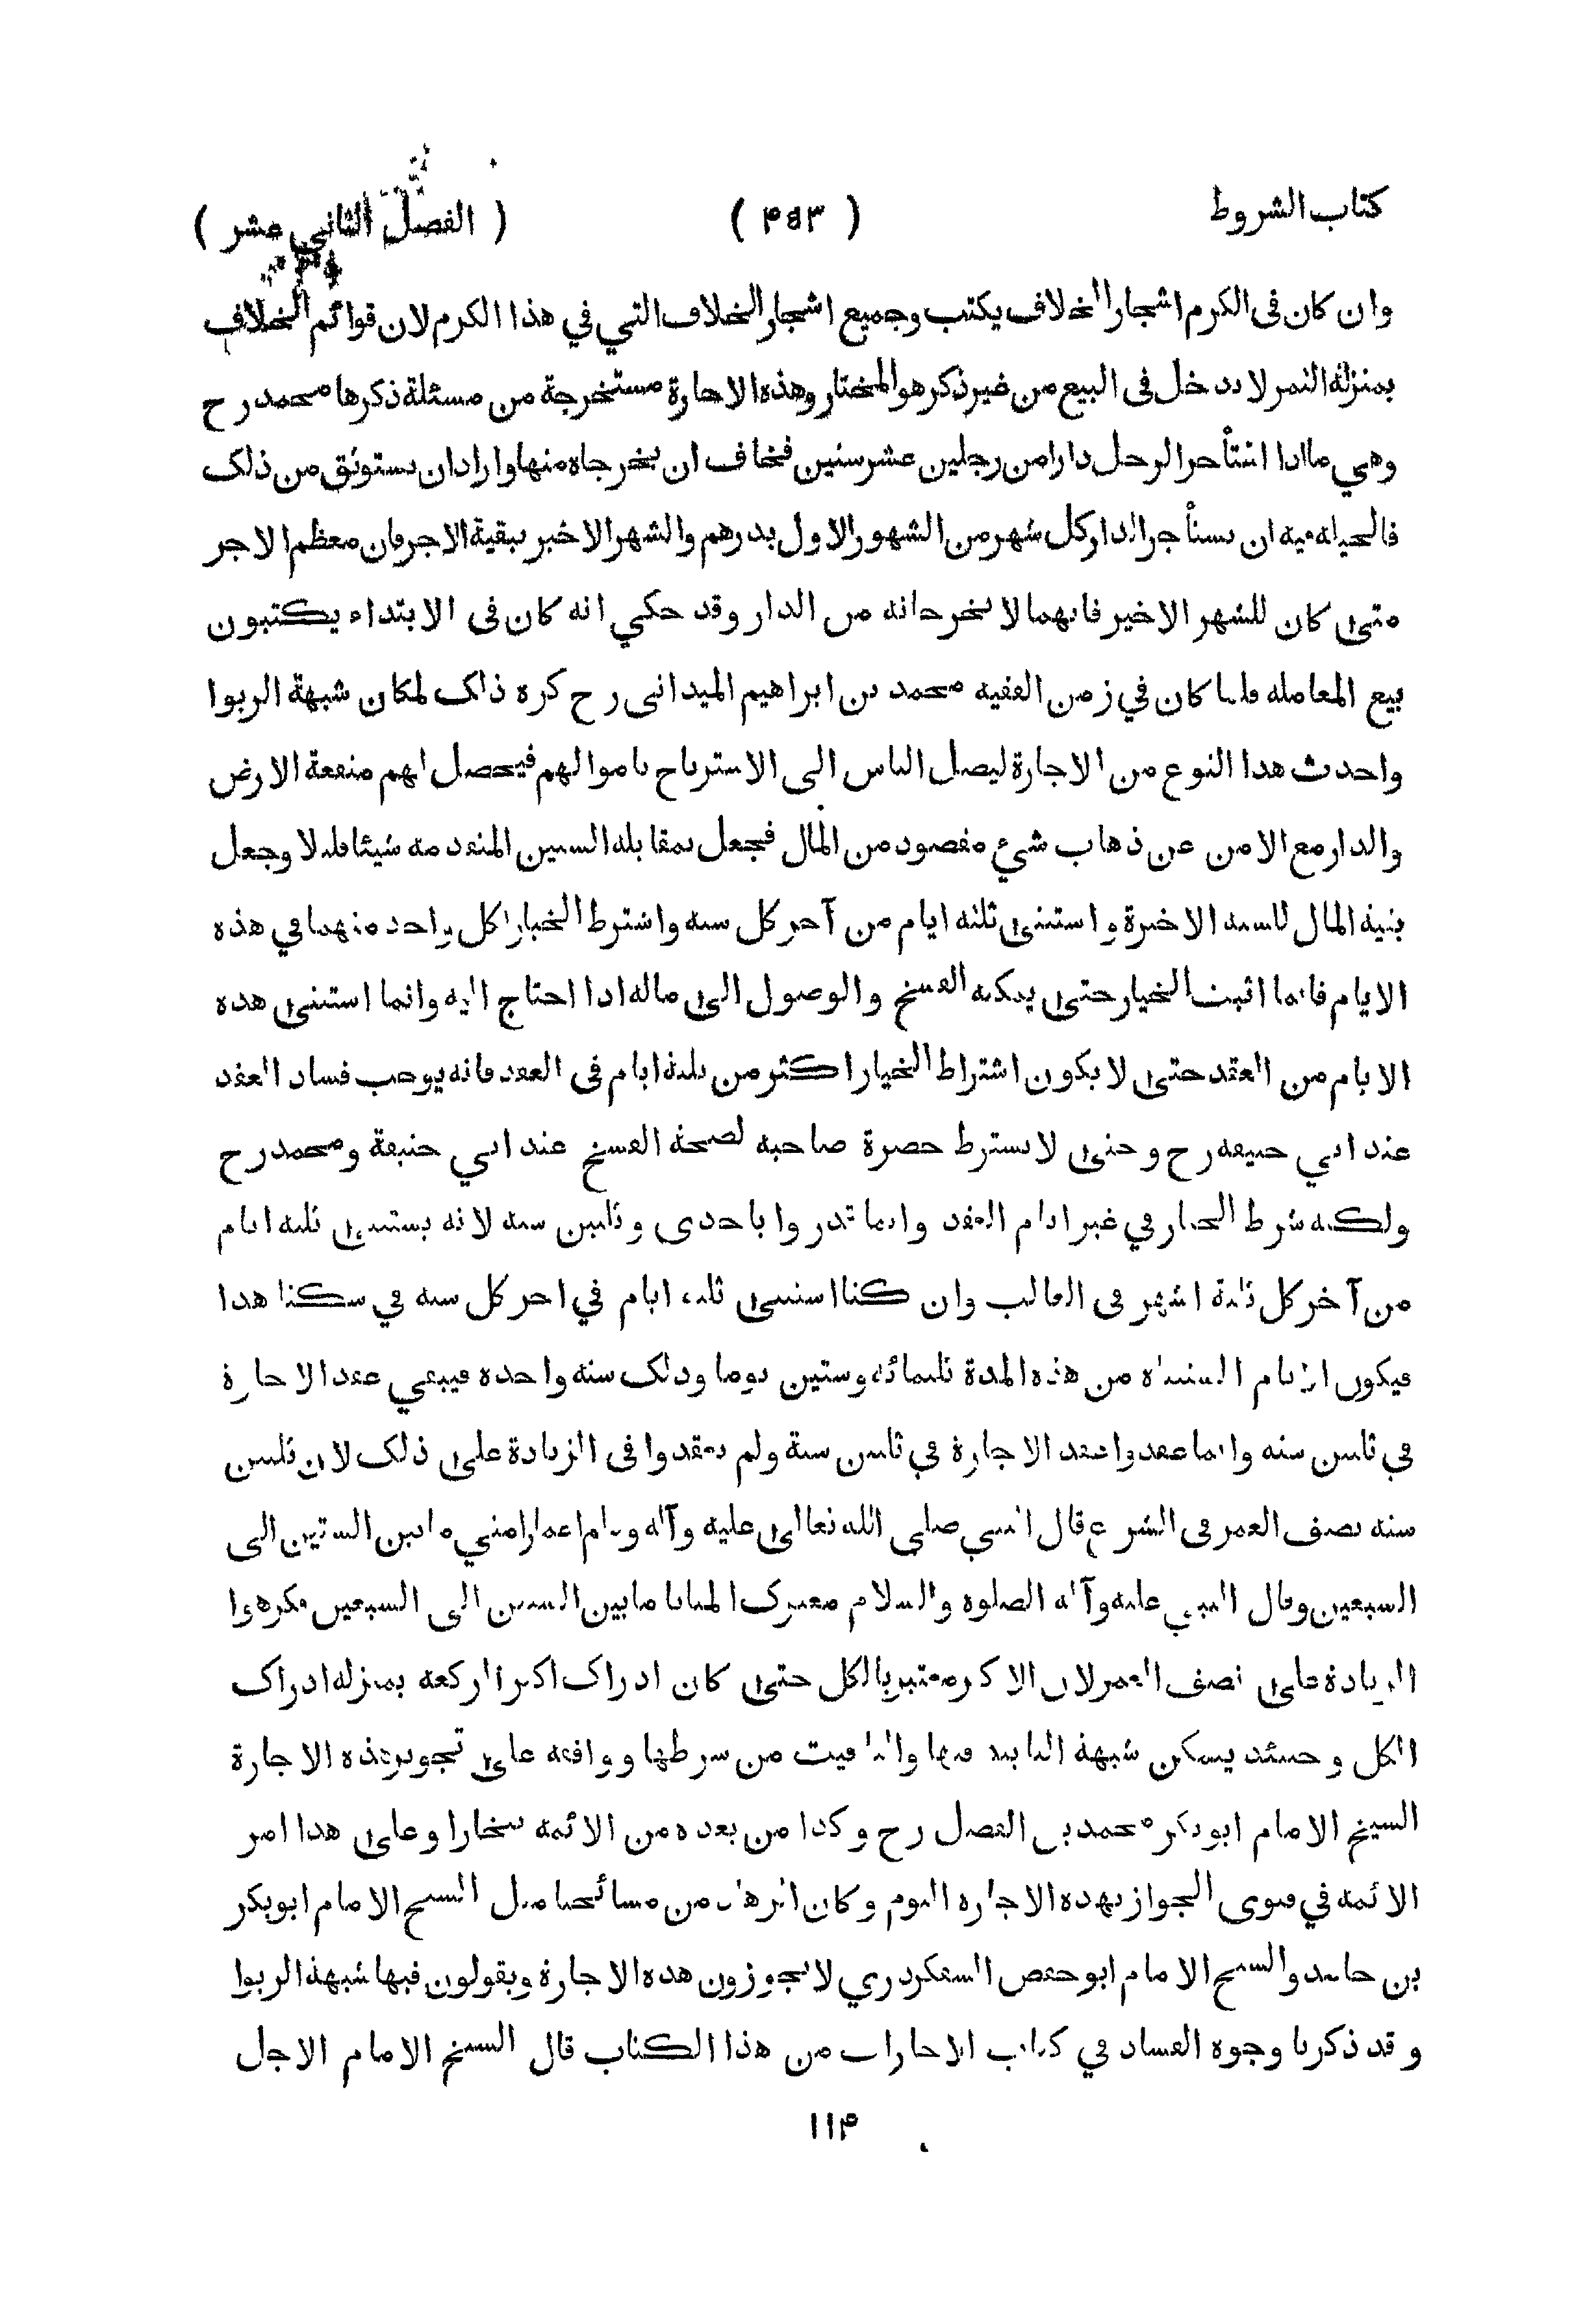 كتاب الشروط ( ۴۵۳ ) ( الفصل الثاني عشر )
وان كان فى الكرم اشجار الخلاف يكتب وجميع اشجار الخلاف التي في هذا الكرم لان قوائم الخلاف
بمنزلة الثمر لا يدخل فى البيع من غير ذكر هو المختار وهذه الاجارة مستخرجة من مسئلة ذكرها محمد رح
وهي ما اذا استأجر الرجل دارا من رجلين عشر سنين فخاف ان يخرجاه منها وارادان يستوثق من ذلك
فالحيلة فيه ان يستأجر الدار كل شهر من الشهور الاول بدرهم والشهر الاخير ببقية الاجر فان معظم الاجر
متى كان للشهر الاخير فانهما لا يخرجانه من الدار وقد حكي انه كان فى الابتداء يكتبون
بيع المعاملة فلما كان في زمن الفقيه محمد بن ابراهيم الميدانى رح كره ذلك لمكان شبهة الربوا
واحدث هذا النوع من الاجارة ليصل الناس الى الاسترباح باموالهم فيحصل لهم منفعة الارض
والدار مع الامن عن ذهاب شيء مقصود من المال فجعل بمقابلة السنين المتقدمة شيئا قليلا وجعل
بقية المال للسنة الاخيرة واستثنى ثلثة ايام من آخر كل سنة واشترط الخيار لكل واحد منهما في هذه
الايام فانما اثبت الخيار حتى يمكنه الفسخ والوصول الى ماله اذا احتاج اليه وانما استثنى هذه
الايام من العقد حتى لا يكون اشتراط الخيار اكثر من ثلثة ايام فى العقد فانه يوجب فساد العقد
عند ابي حنيفة رح وحتى لا يشترط حضرة صاحبه لصحة الفسخ عند ابي حنيفة ومحمد رح
ولكنه شرط الخيار في غير ايام العقد وانما قدروا باحدى وثلثين سنة لانه يستثنى ثلثة ايام
من آخر كل ثلثة اشهر فى الغالب وان كنا استثنى ثلثة ايام في اخر كل سنة في سكنا هذا
فيكون الايام المستثناة من هذه المدة ثلثمائة وستين يوما وذلك سنة واحدة فيبقي عقد الاجارة
في ثلثين سنة وانما عقدوا عقد الاجارة في ثلثين سنة ولم يعقدوا فى الزيادة على ذلك لان ثلثين
سنة نصف العمر فى الشرع قال النبي صلى الله تعالى عليه وآله وسلم اعمار امتي ما بين الستين الى
السبعين وقال النبي عليه وآله الصلوة والسلام معترك المنايا ما بين الستين الى السبعين فكرهوا
الزيادة على نصف العمر لان الاكثر معتبر بالكل حتى كان ادراك اكثر الركعة بمنزلة ادراك
الكل وحينئذ يتمكن شبهة التابيد فيها والتاقيت من شرطها ووافقه على تجويز هذه الاجارة
الشيخ الامام ابوبكر محمد بن الفضل رح وكذا من بعده من الائمة ببخارا وعلى هذا امر
الائمة في فتوى الجواز بهذه الاجارة اليوم وكان الزهاد من مشائخنا مثل الشيخ الامام ابوبكر
بن حامد والشيخ الامام ابوحفص السفكردري لا يجوزون هذه الاجارة ويقولون فيها شبهة الربوا
وقد ذكرنا وجوه الفساد في كتاب الاجارات من هذا الكتاب قال الشيخ الامام الاجل
۱۱۴